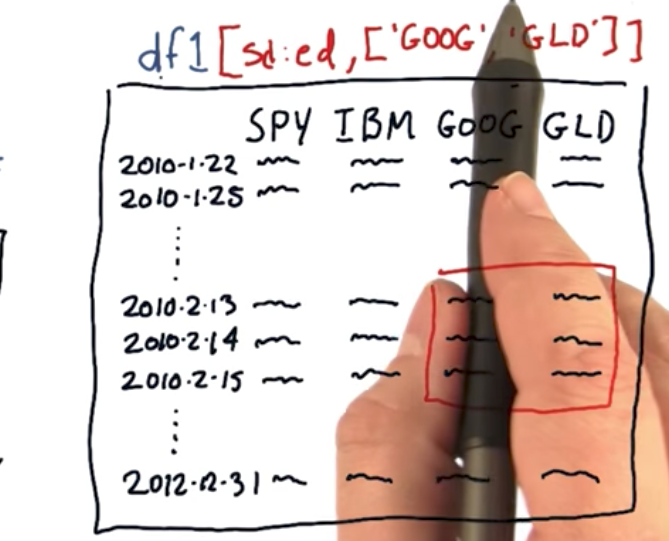 df1[sd:ed,['GOOG','GLD']]
SPY IBM GOOG GLD
2010-1-22
2010-1-25
2010-2-13
2010-2-14
2010-2-15
2012-12-31